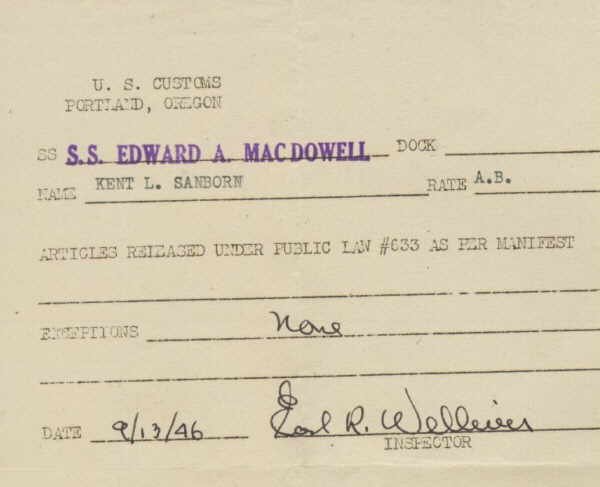 U. S. CUSTOMS
PORTLAND, OREGON
SS S.S. EDWARD A. MACDOWELL DOCK
NAME KENT L. SANBORN RATE A.B.
ARTICLES RELEASED UNDER PUBLIC LAW #633 AS PER MANIFEST
EXCEPTIONS None
DATE 9/13/46 Earl R. Welliver
INSPECTOR